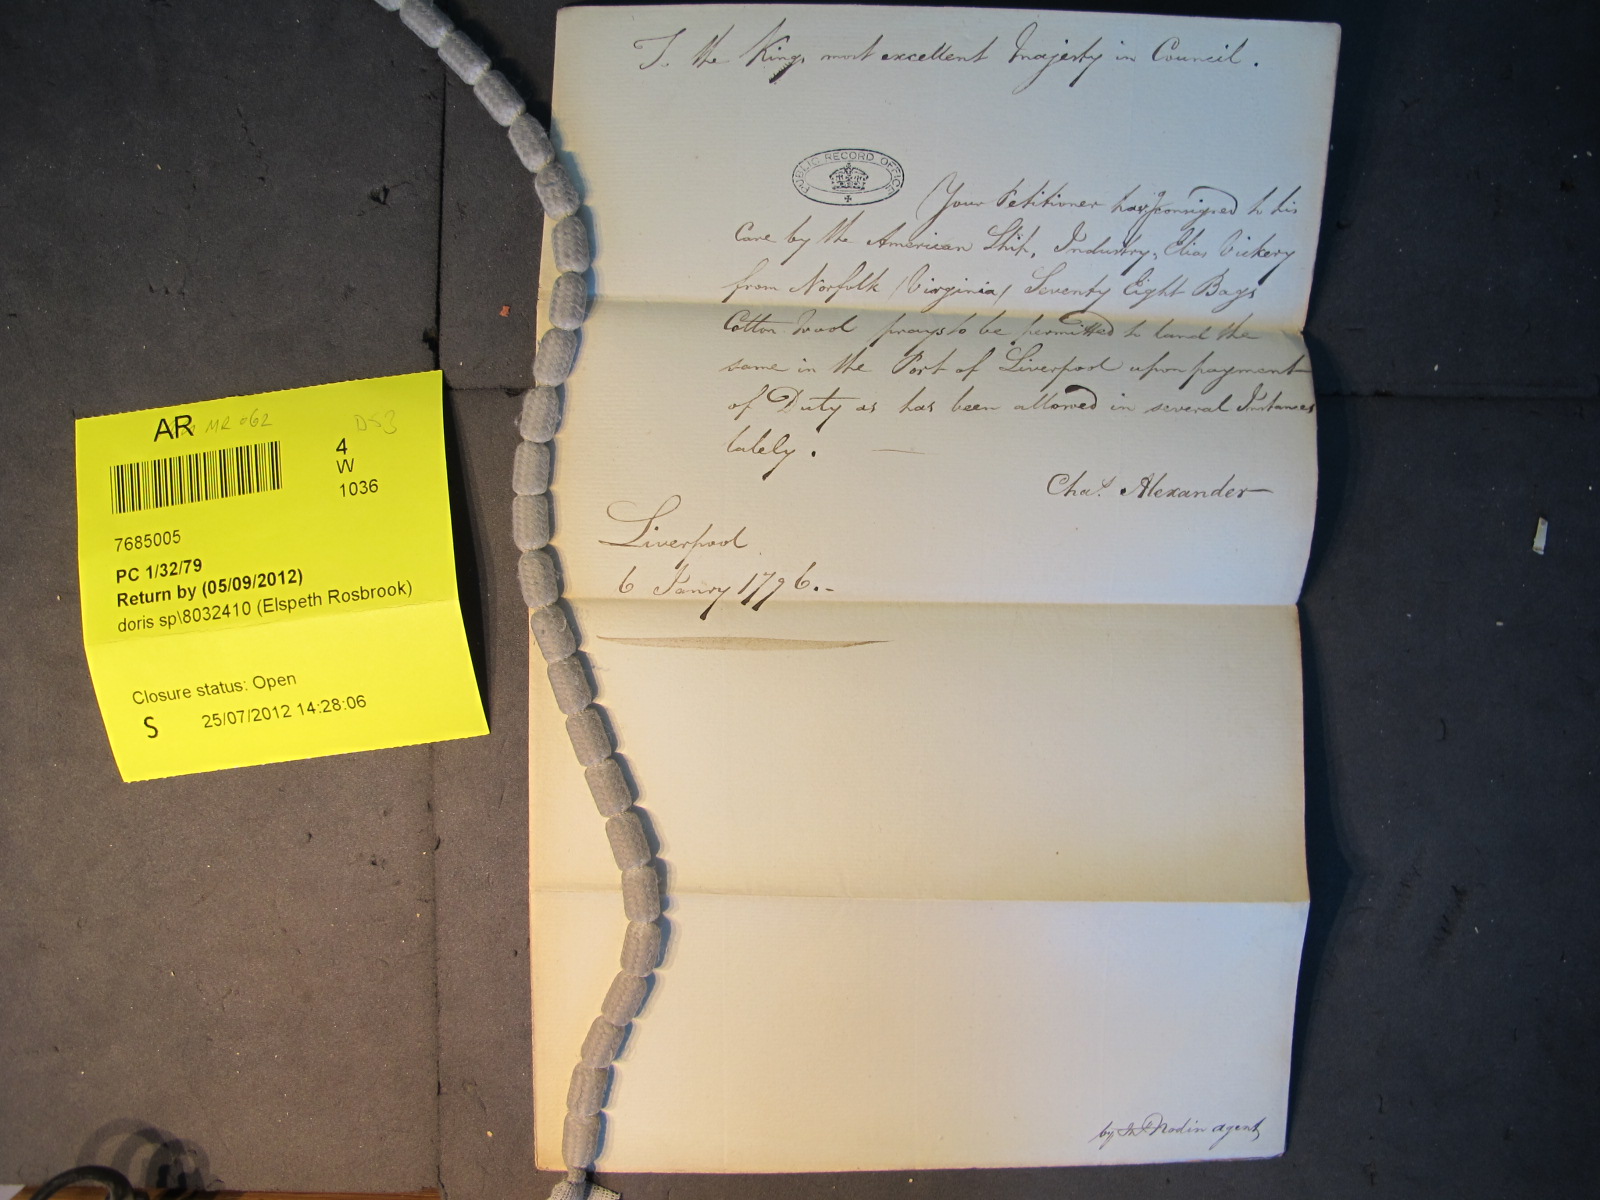 To the Kings most excellent Majesty in Council.
PUBLIC RECORD OFFICE
Your Petitioner having consigned to his
Care by the American Ship, Industry, Elias Vickery
from Norfolk (Virginia) Seventy Eight Bags
Cotton Wool prays to be permitted to land the
same in the Port of Liverpool upon payment
of Duty as has been allowed in several Instances
lately.
Chas. Alexander
Liverpool
6 Janry 1796.-
agent
AR MR 062 DS3
4
W
1036
7685005
PC 1/32/79
Return by (05/09/2012)
doris sp\8032410 (Elspeth Rosbrook)
Closure status: Open
S 25/07/2012 14:28:06